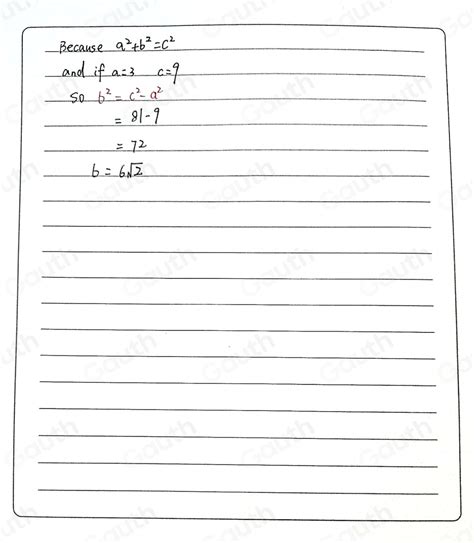 Because a²+b²=c²
and if a=3 c=9
so b²= c²-a²
= 81-9
= 72
b = 6√2